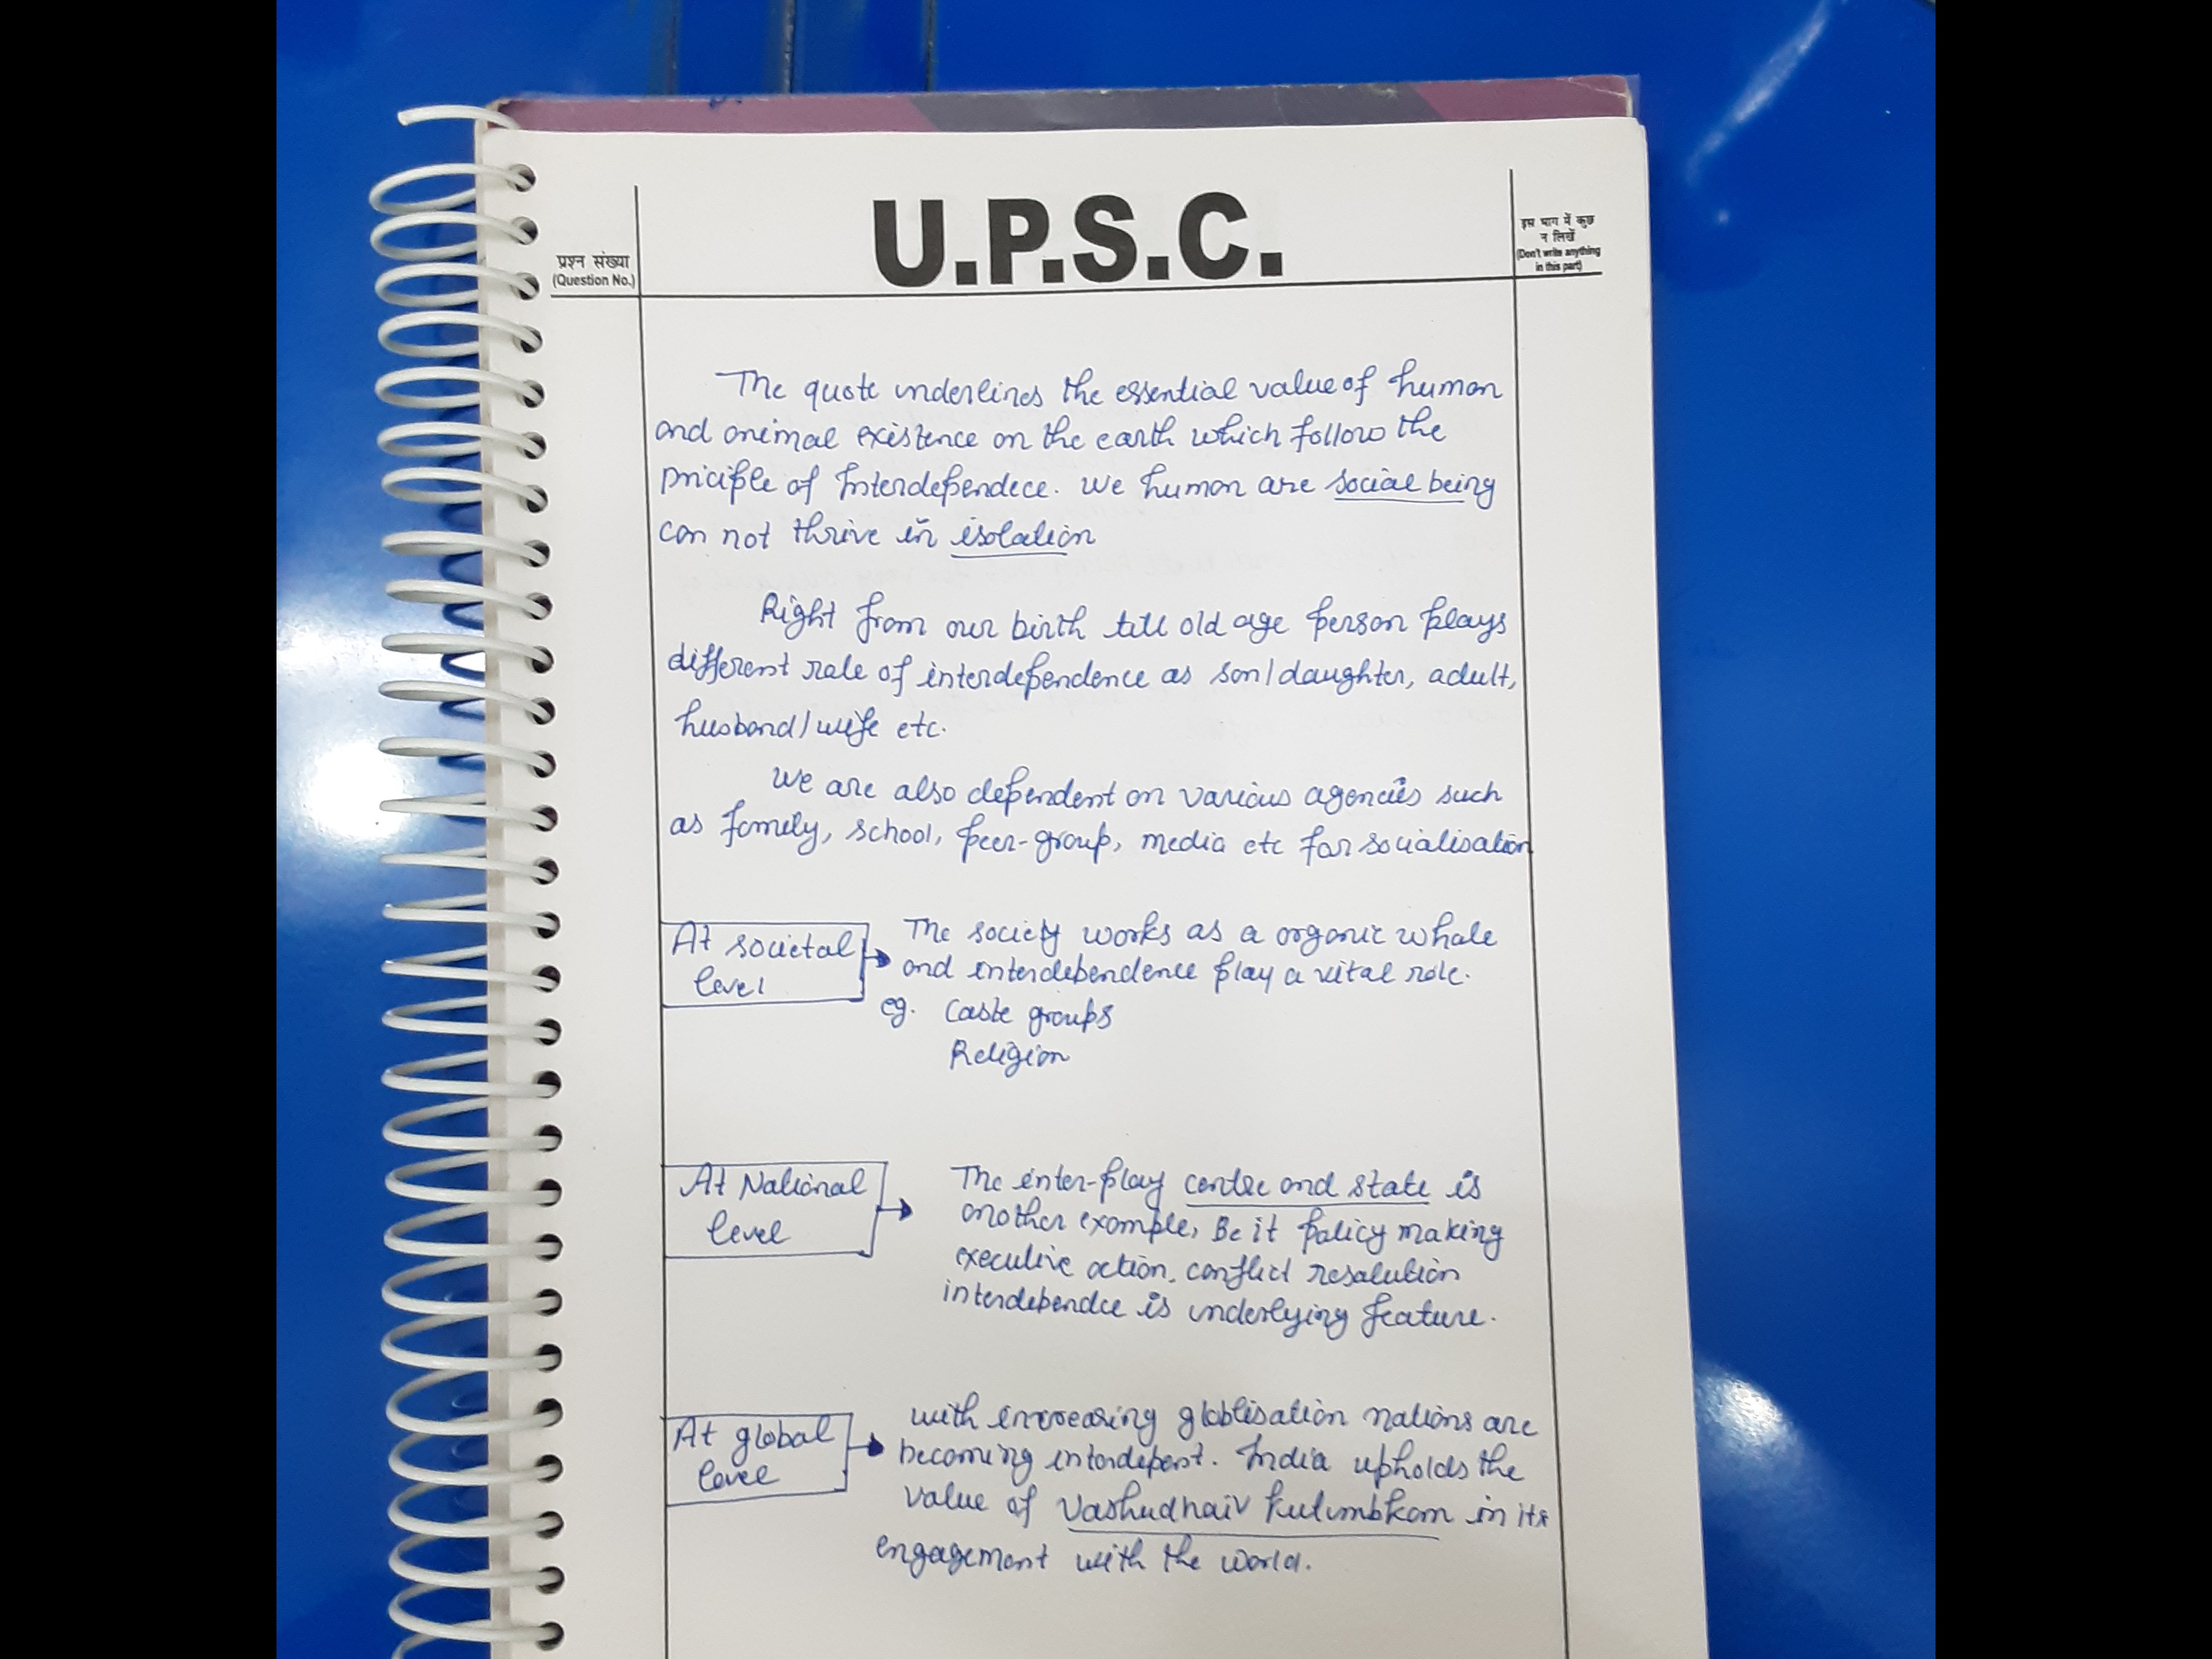 U.P.S.C.
प्रश्न संख्या
(Question No.)
इस भाग में कुछ
न लिखें
(Don't write anything
in this part)
The quote underlines the essential value of human
and animal existence on the earth which follow the
priciple of Interdependece. We human are social being
can not thrive in isolation
Right from our birth till old age person plays
different role of interdependence as son/daughter, adult,
husband/wife etc.
We are also dependent on various agencies such
as family, school, peer-group, media etc for socialisation
At societal
level
The society works as a organic whole
and interdependence play a vital role.
eg. Caste groups
Religion
At National
level
The inter-play centre and state is
another example, Be it policy making
executive action, conflict resolution
interdependce is underlying feature.
At global
level
with increasing globlisation nations are
becoming interdepent. India upholds the
value of Vashudhaiv kutumbkam in its
engagement with the world.